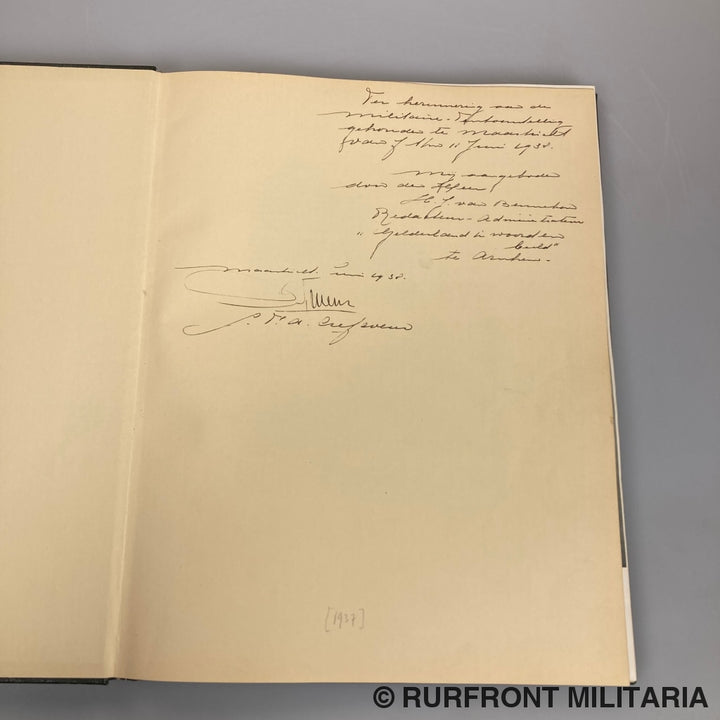 Ter herinnering aan de
militaire - Tentoonstelling
gehouden te Maastricht
van 7 t/m 11 Juni 1938.
Mij aangeboden
door den Heer
H. J. van
Redacteur - Administrateur
"Gelderland in woord en
beeld"
te Arnhem.
Maastricht. Juni 1938.
[1937]
© RURFRONT MILITARIA